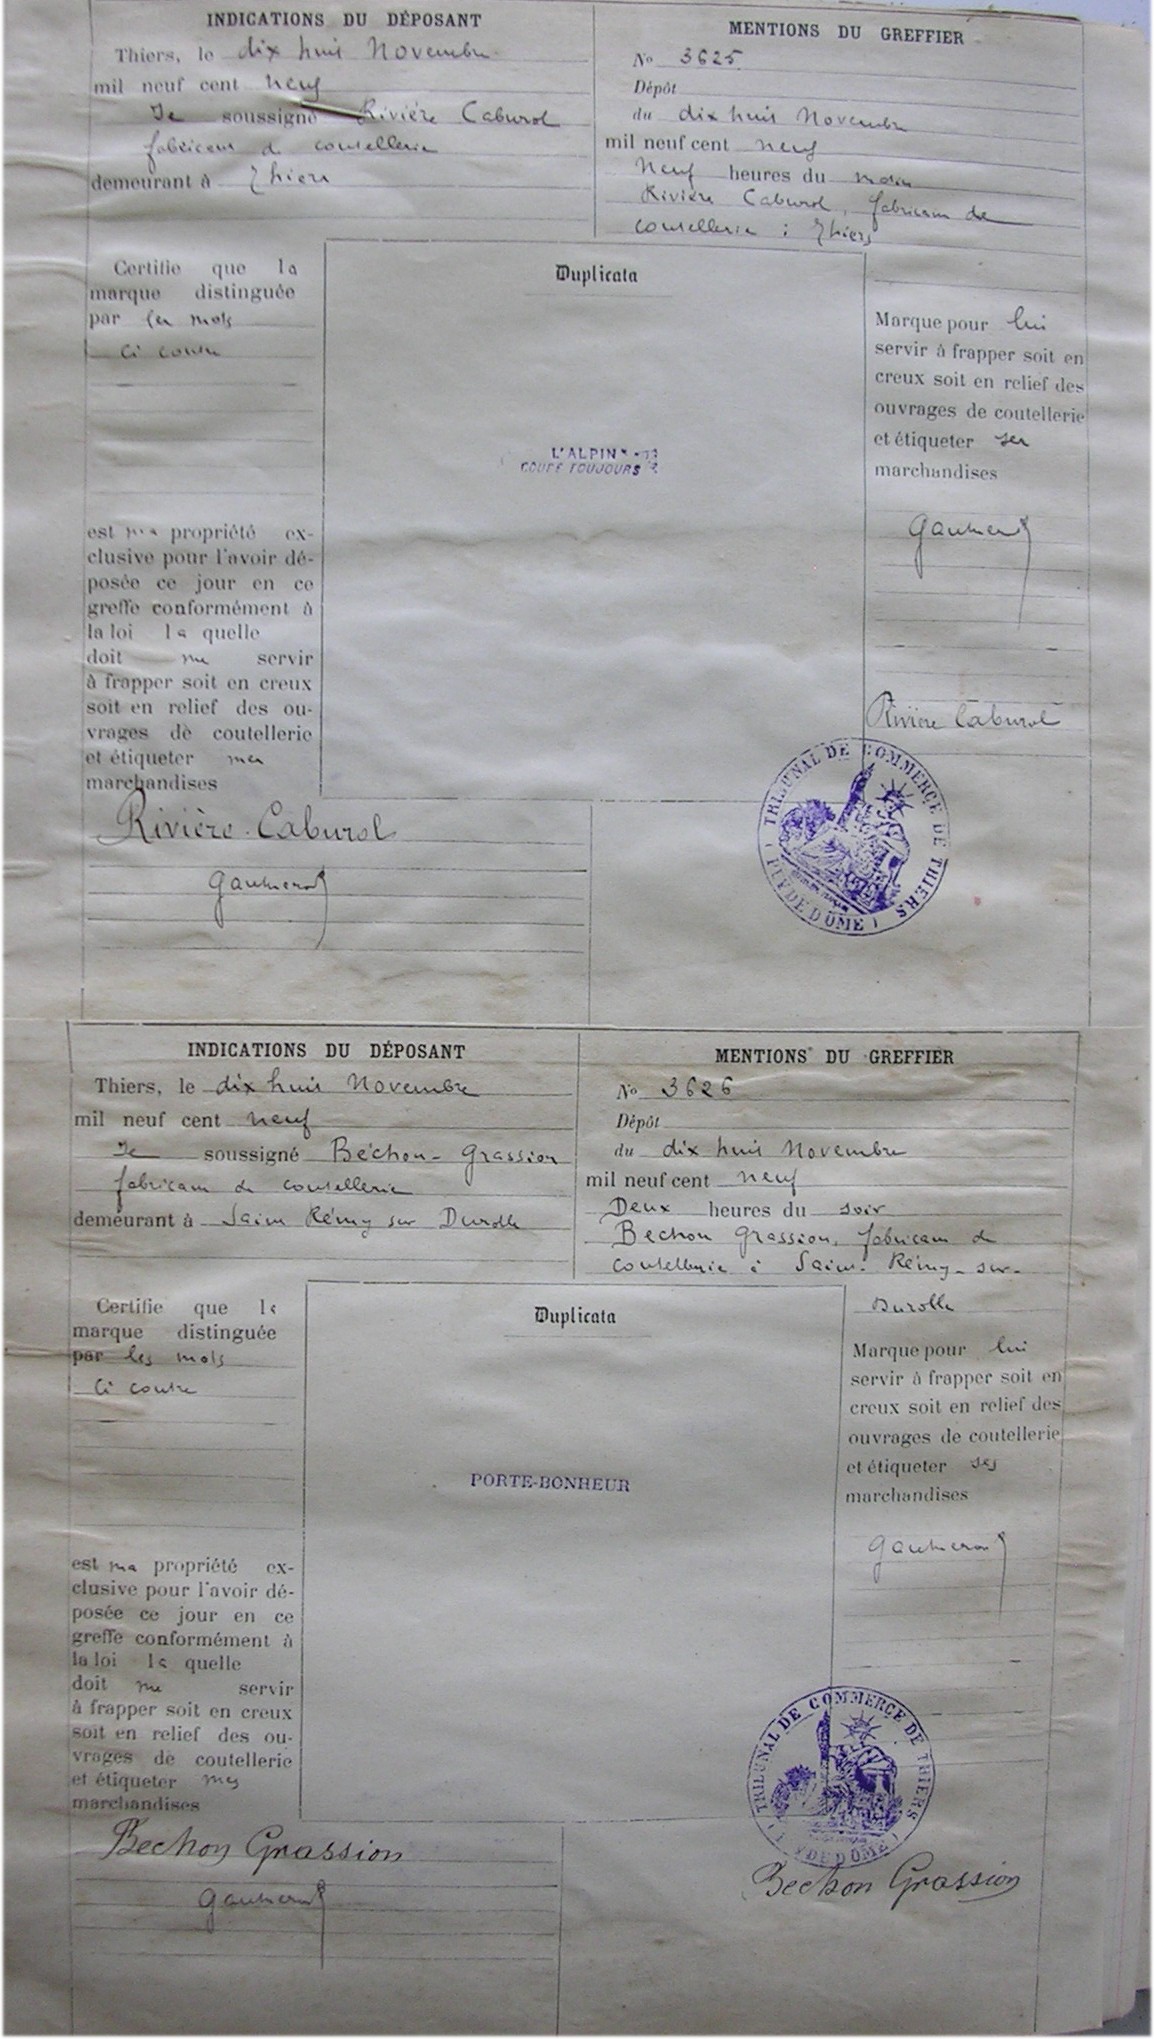 INDICATIONS DU DÉPOSANT
Thiers, le dix huit Novembre
mil neuf cent neuf
Je soussigné Rivière Caburol
fabricant de coutellerie
demeurant à Thiers
MENTIONS DU GREFFIER
No 3625
Dépôt
du dix huit Novembre
mil neuf cent neuf
Neuf heures du matin
Rivière Caburol, fabricant de
coutellerie à Thiers
Certifie que la
marque distinguée
par les mots
ci contre
est ma propriété ex-
clusive pour l'avoir dé-
posée ce jour en ce
greffe conformément à
la loi la quelle
doit me servir
à frapper soit en creux
soit en relief des ou-
vrages de coutellerie
et étiqueter mes
marchandises
Rivière-Caburol
Duplicata
L'ALPIN
COUPE TOUJOURS
Marque pour lui
servir à frapper soit en
creux soit en relief des
ouvrages de coutellerie
et étiqueter ses
marchandises
Rivière Caburol
TRIBUNAL DE COMMERCE DE THIERS
PUY DE DÔME
INDICATIONS DU DÉPOSANT
Thiers, le dix huit Novembre
mil neuf cent neuf
Je soussigné Béchon-Grassion
fabricant de coutellerie
demeurant à Saint Rémy sur Durolle
MENTIONS DU GREFFIER
No 3626
Dépôt
du dix huit Novembre
mil neuf cent neuf
Deux heures du soir
Bechon Grassion, fabricant de
coutellerie à Saint-Rémy-sur-
Durolle
Certifie que la
marque distinguée
par les mots
ci contre
est ma propriété ex-
clusive pour l'avoir dé-
posée ce jour en ce
greffe conformément à
la loi la quelle
doit me servir
à frapper soit en creux
soit en relief des ou-
vrages de coutellerie
et étiqueter mes
marchandises
Bechon Grassion
Duplicata
PORTE-BONHEUR
Marque pour lui
servir à frapper soit en
creux soit en relief des
ouvrages de coutellerie
et étiqueter ses
marchandises
TRIBUNAL DE COMMERCE DE THIERS
PUY DE DÔME
Bechon Grassion